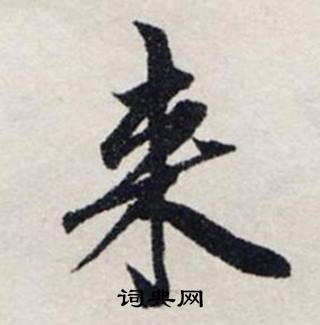 来
词典网